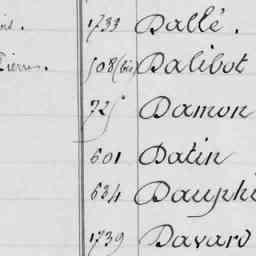 1733 Dallé.
Pierre. 508 (bis) Dalibot
725 Damon
601 Datin
634 Dauphi
1739 Davard